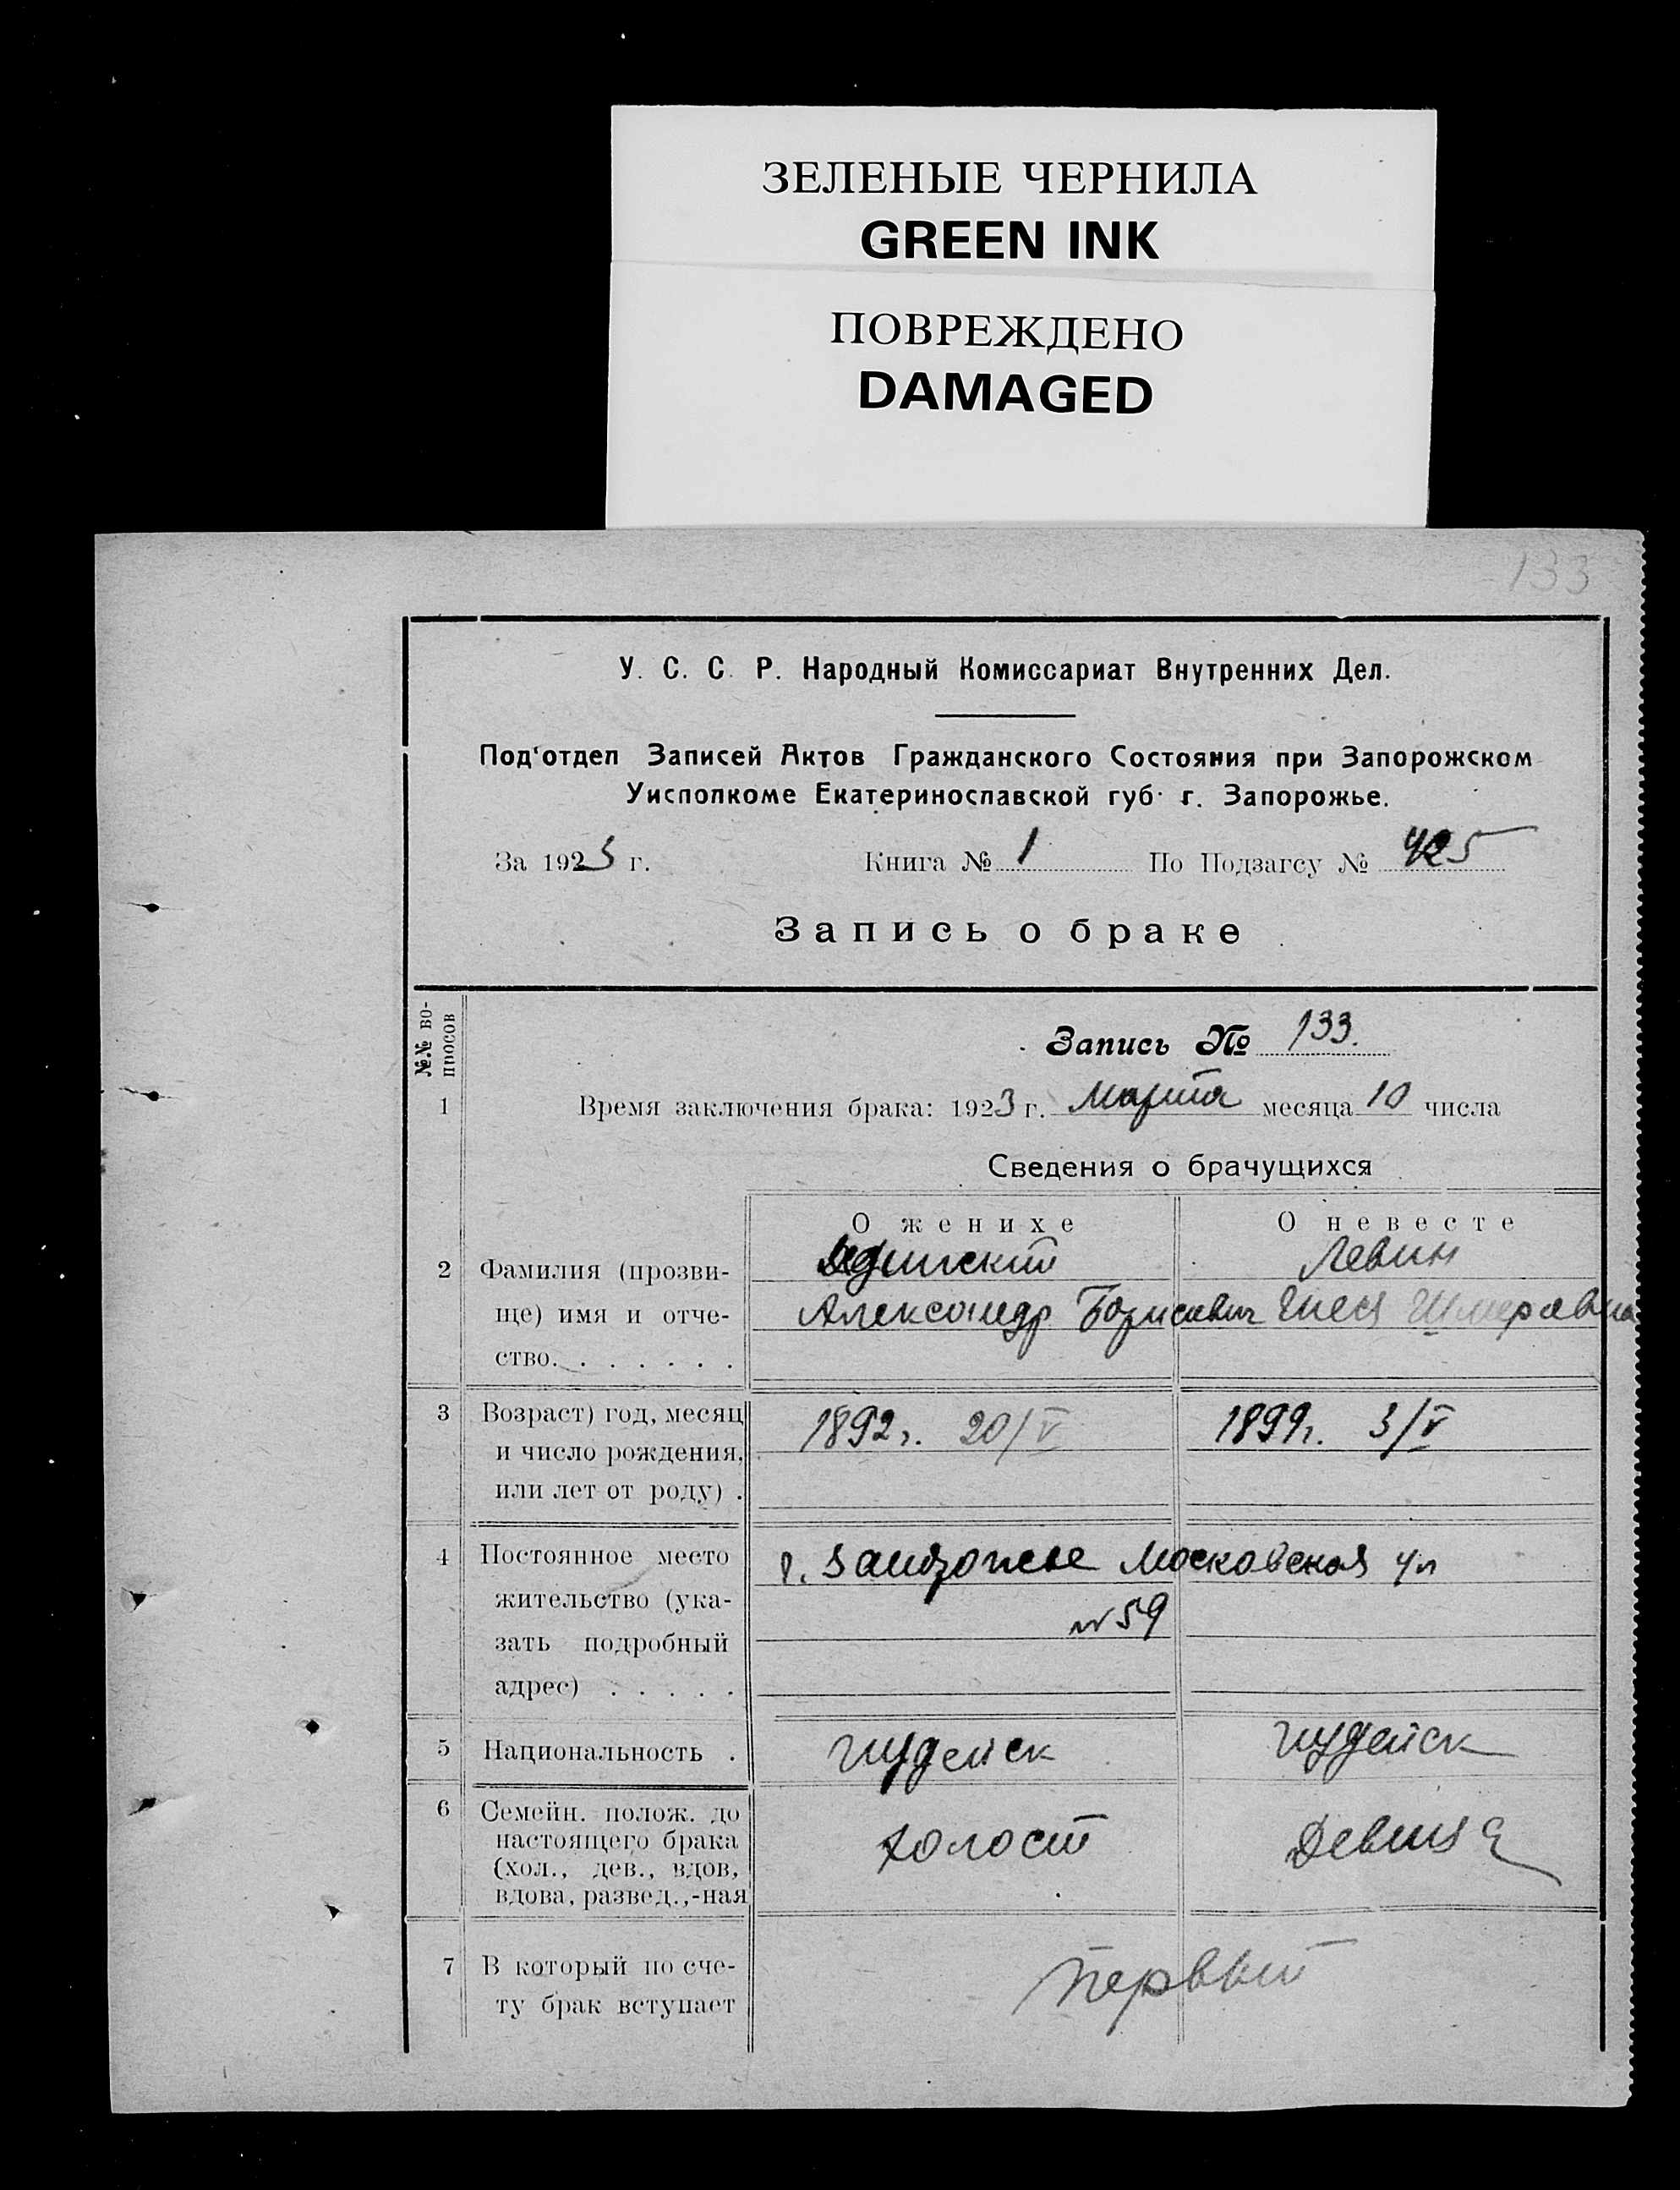 ЗЕЛЕНЫЕ ЧЕРНИЛА
GREEN INK
ПОВРЕЖДЕНО
DAMAGED
133
У. С. С. Р. Народный Комиссариат Внутренних Дел.
Под'отдел Записей Актов Гражданского Состояния при Запорожском
Уисполкоме Екатеринославской губ. г. Запорожье.
За 1923 г. Книга № 1 По Подзагсу № 425
Запись о браке
№№ вопросов
Запись № 133.
1 Время заключения брака: 1923 г. Марта месяца 10 числа
Сведения о брачущихся
О женихе О невесте
2 Фамилия (прозви- Левин
ще) имя и отче- Александр Борисович Шмеровна
ство. . . . . . .
3 Возраст) год, месяц 1892 г. 20/V 1899 г. 3/V
и число рождения,
или лет от роду) .
4 Постоянное место г. Запорожье Московская ул
жительство (ука- № 59
зать подробный
адрес) . . . . .
5 Национальность . иудейск иудейск
6 Семейн. полож. до
настоящего брака холост девица
(хол., дев., вдов,
вдова, развед.,-ная
7 В который по сче- Первый
ту брак вступает